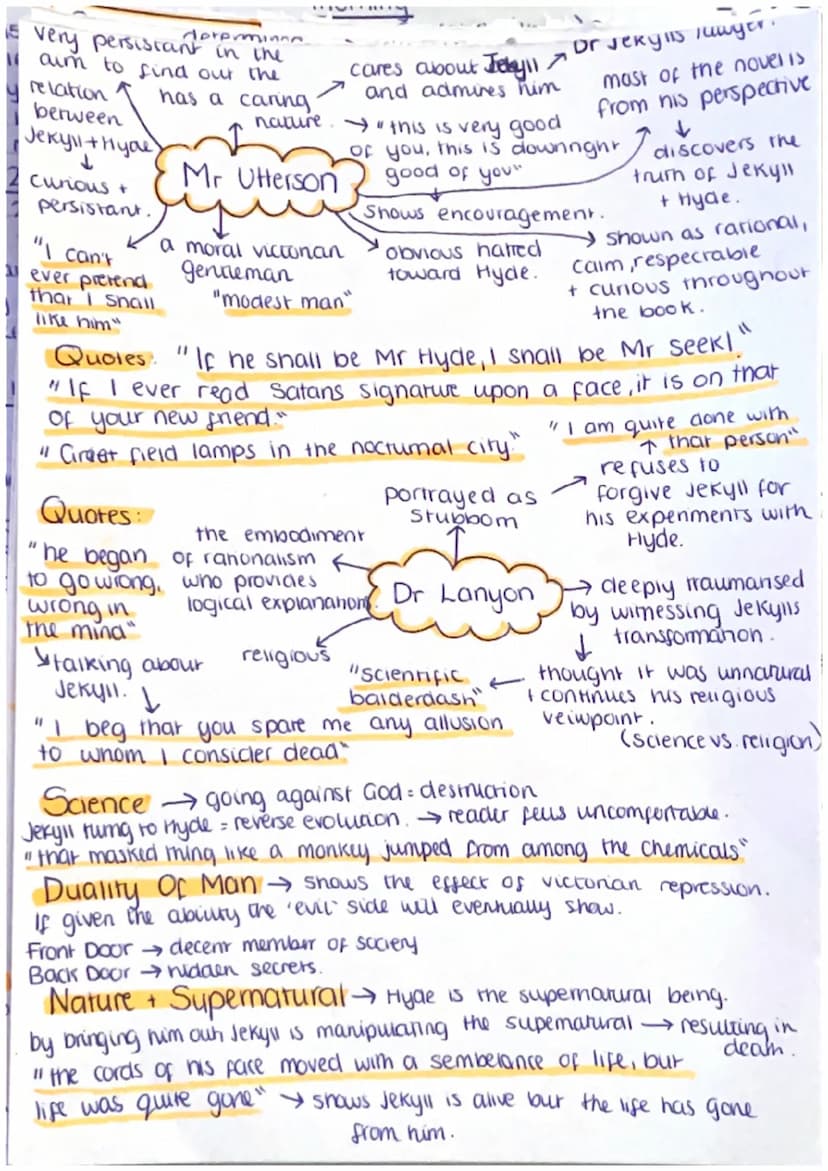 determined
very persistant in the
aim to find out the
relation
between
Jekyll + Hyde
curious +
persistant.
has a caring
nature.
cares about Jekyll
and admires him
Dr Jekylls lawyer.
most of the novel is
from his perspective
discovers the
truth of Jekyll
+ Hyde.
"this is very good
of you, this is downright
good of you"
Shows encouragement.
Mr Utterson
"I can't
ever pretend
that I shall
like him"
a moral victorian
gentleman
"modest man"
obvious hatred
toward Hyde.
shown as rational,
calm, respectable
+ curious throughout
the book.
Quotes: "If he shall be Mr Hyde, I shall be Mr Seek!"
"If I ever read Satans signature upon a face, it is on that
of your new friend."
"Greet field lamps in the nocturnal city."
"I am quite done with
that person"
refuses to
forgive Jekyll for
his experiments with
Hyde.
portrayed as
stubborn
Quotes:
"he began
to go wrong,
wrong in
the mind"
talking about
Jekyll.
the embodiment
of rationalism
who provides
logical explanation.
Dr Lanyon
religious
deeply traumatised
by witnessing Jekylls
transformation.
thought it was unnatural
+ continues his religious
veiwpoint.
(science vs. religion)
"scientific
balderdash"
"I beg that you spare me any allusion
to whom I consider dead"
Science → going against God = destruction
Jekyll turng to Hyde = reverse evolution. → reader feels uncomfortable.
"that masked thing like a monkey jumped from among the chemicals"
Duality Of Man → shows the effect of victorian repression.
If given the ability the 'evil' side will eventually show.
Front Door → decent member of society
Back Door → hidden secrets.
Nature + Supernatural → Hyde is the supernatural being.
by bringing him out Jekyll is manipulating the supernatural → resulting in
death.
"the cords of his face moved with a semblance of life, but
life was quite gone" → shows Jekyll is alive but the life has gone
from him.